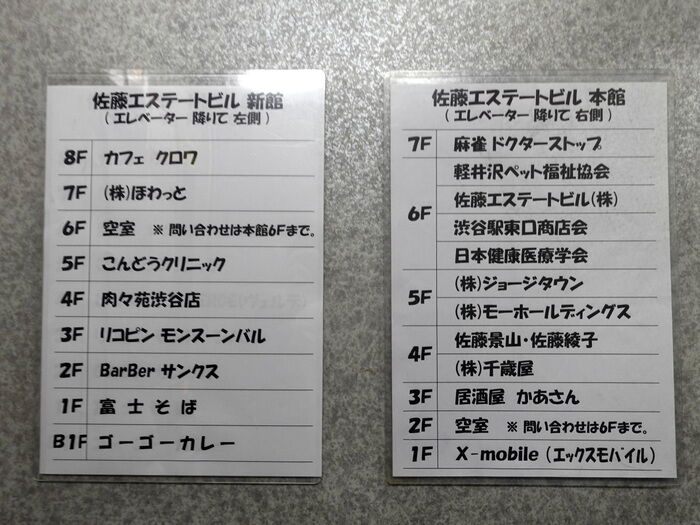 佐藤エステートビル 新館
( エレベーター 降りて 左側 )
8F カフェ クロワ
7F (株)ほわっと
6F 空室 ※ 問い合わせは本館6Fまで。
5F こんどうクリニック
4F 肉々苑渋谷店
3F リコピン モンスーンバル
2F BarBer サンクス
1F 富士そば
B1F ゴーゴーカレー
佐藤エステートビル 本館
( エレベーター 降りて 右側 )
7F 麻雀 ドクターストップ
6F 軽井沢ペット福祉協会
佐藤エステートビル(株)
渋谷駅東口商店会
日本健康医療学会
5F (株)ジョージタウン
(株)モーホールディングス
4F 佐藤景山・佐藤綾子
(株)千歳屋
3F 居酒屋 かあさん
2F 空室 ※ 問い合わせは6Fまで。
1F X-mobile (エックスモバイル)